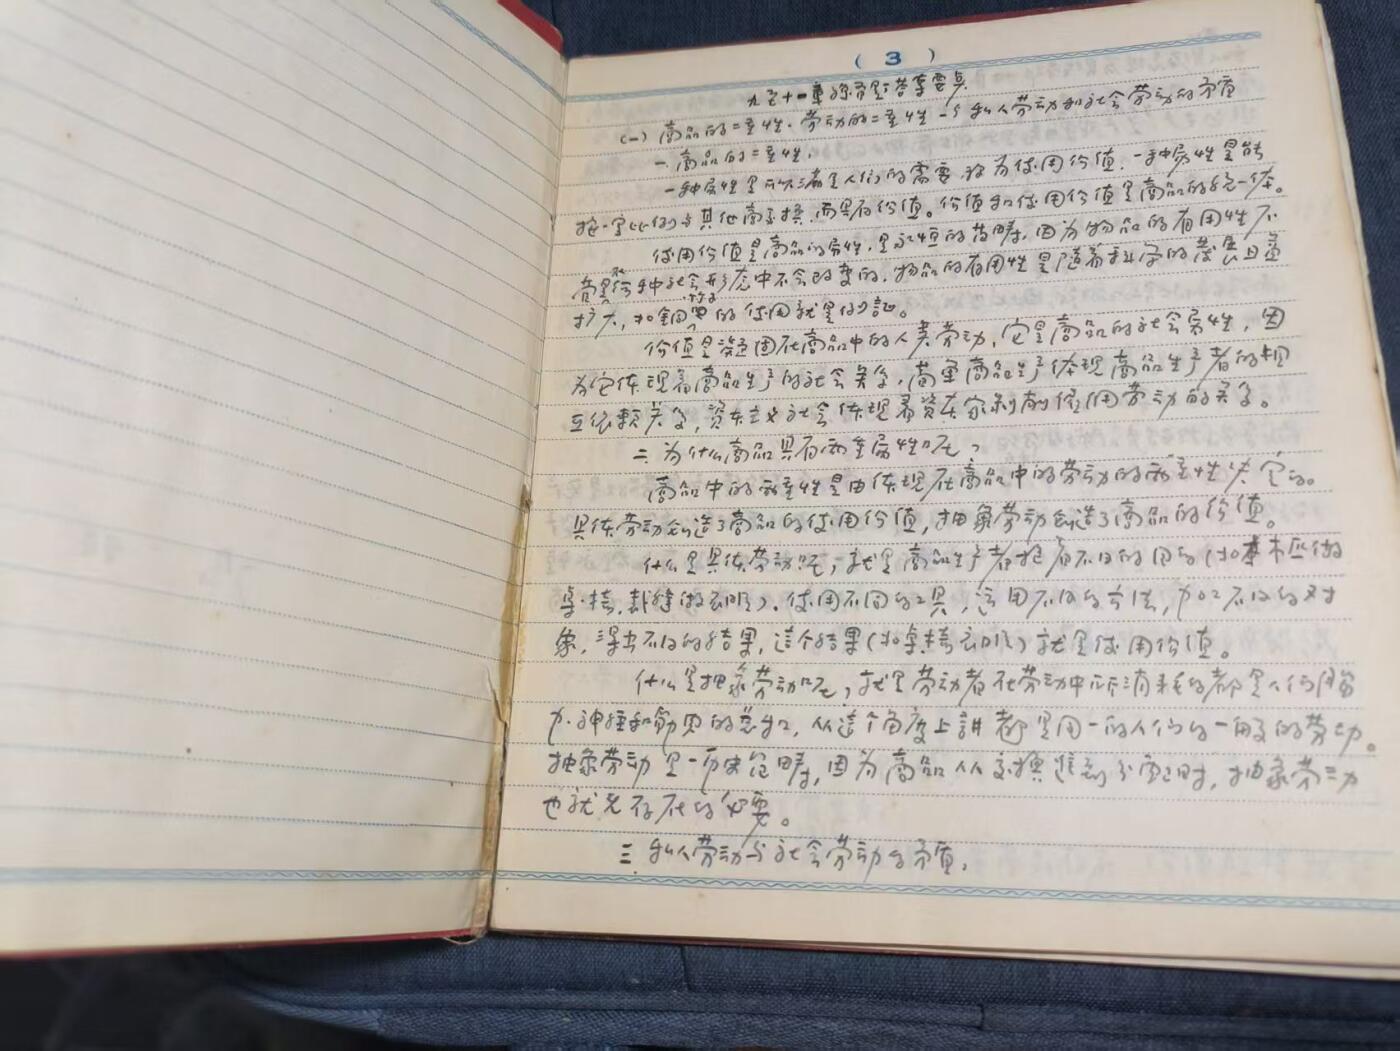 (3)
九至十一章複习題答案要点
(一) 商品的二重性、劳动的二重性与私人劳动和社会劳动的矛盾
一、商品的二重性。
一种属性是可以满足人们的需要称为使用价值，一种属性是能
按一定比例与其他商品交换，而具有价值。价值和使用价值是商品的统一体。
使用价值是商品的属性，是永恒的范畴，因为物品的有用性不
管是在何种社会形态中不会改变的，物品的有用性是随着科学的发展日益
扩大，如的使用就是例証。
价值是凝固在商品中的人类劳动，它是商品的社会属性，因
为它体现着商品生产的社会关系，简單商品生产体现商品生产者的相
互依赖关系，資本主义社会体现着資本家剥削僱佣劳动的关系。
二、为什么商品具有两重属性呢？
商品中的两重性是由体现在商品中的劳动的两重性决定的。
具体劳动創造了商品的使用价值，抽象劳动創造了商品的价值。
什么是具体劳动呢？就是商品生产者抱着不同的目的（如木匠做
桌椅，裁縫做衣服）。使用不同的工具，运用不同的方法，加工不同的对
象，得出不同的結果，這个結果（如桌椅衣服）就是使用价值。
什么是抽象劳动呢？就是劳动者在劳动中所消耗的都是人们
力、神經和筋肉的总和，从這个角度上講都是同一的人们的一般的劳动。
抽象劳动是一历史范疇，因为商品从交换進到分配时，抽象劳动
也就无存在的必要。
三、私人劳动与社会劳动的矛盾。